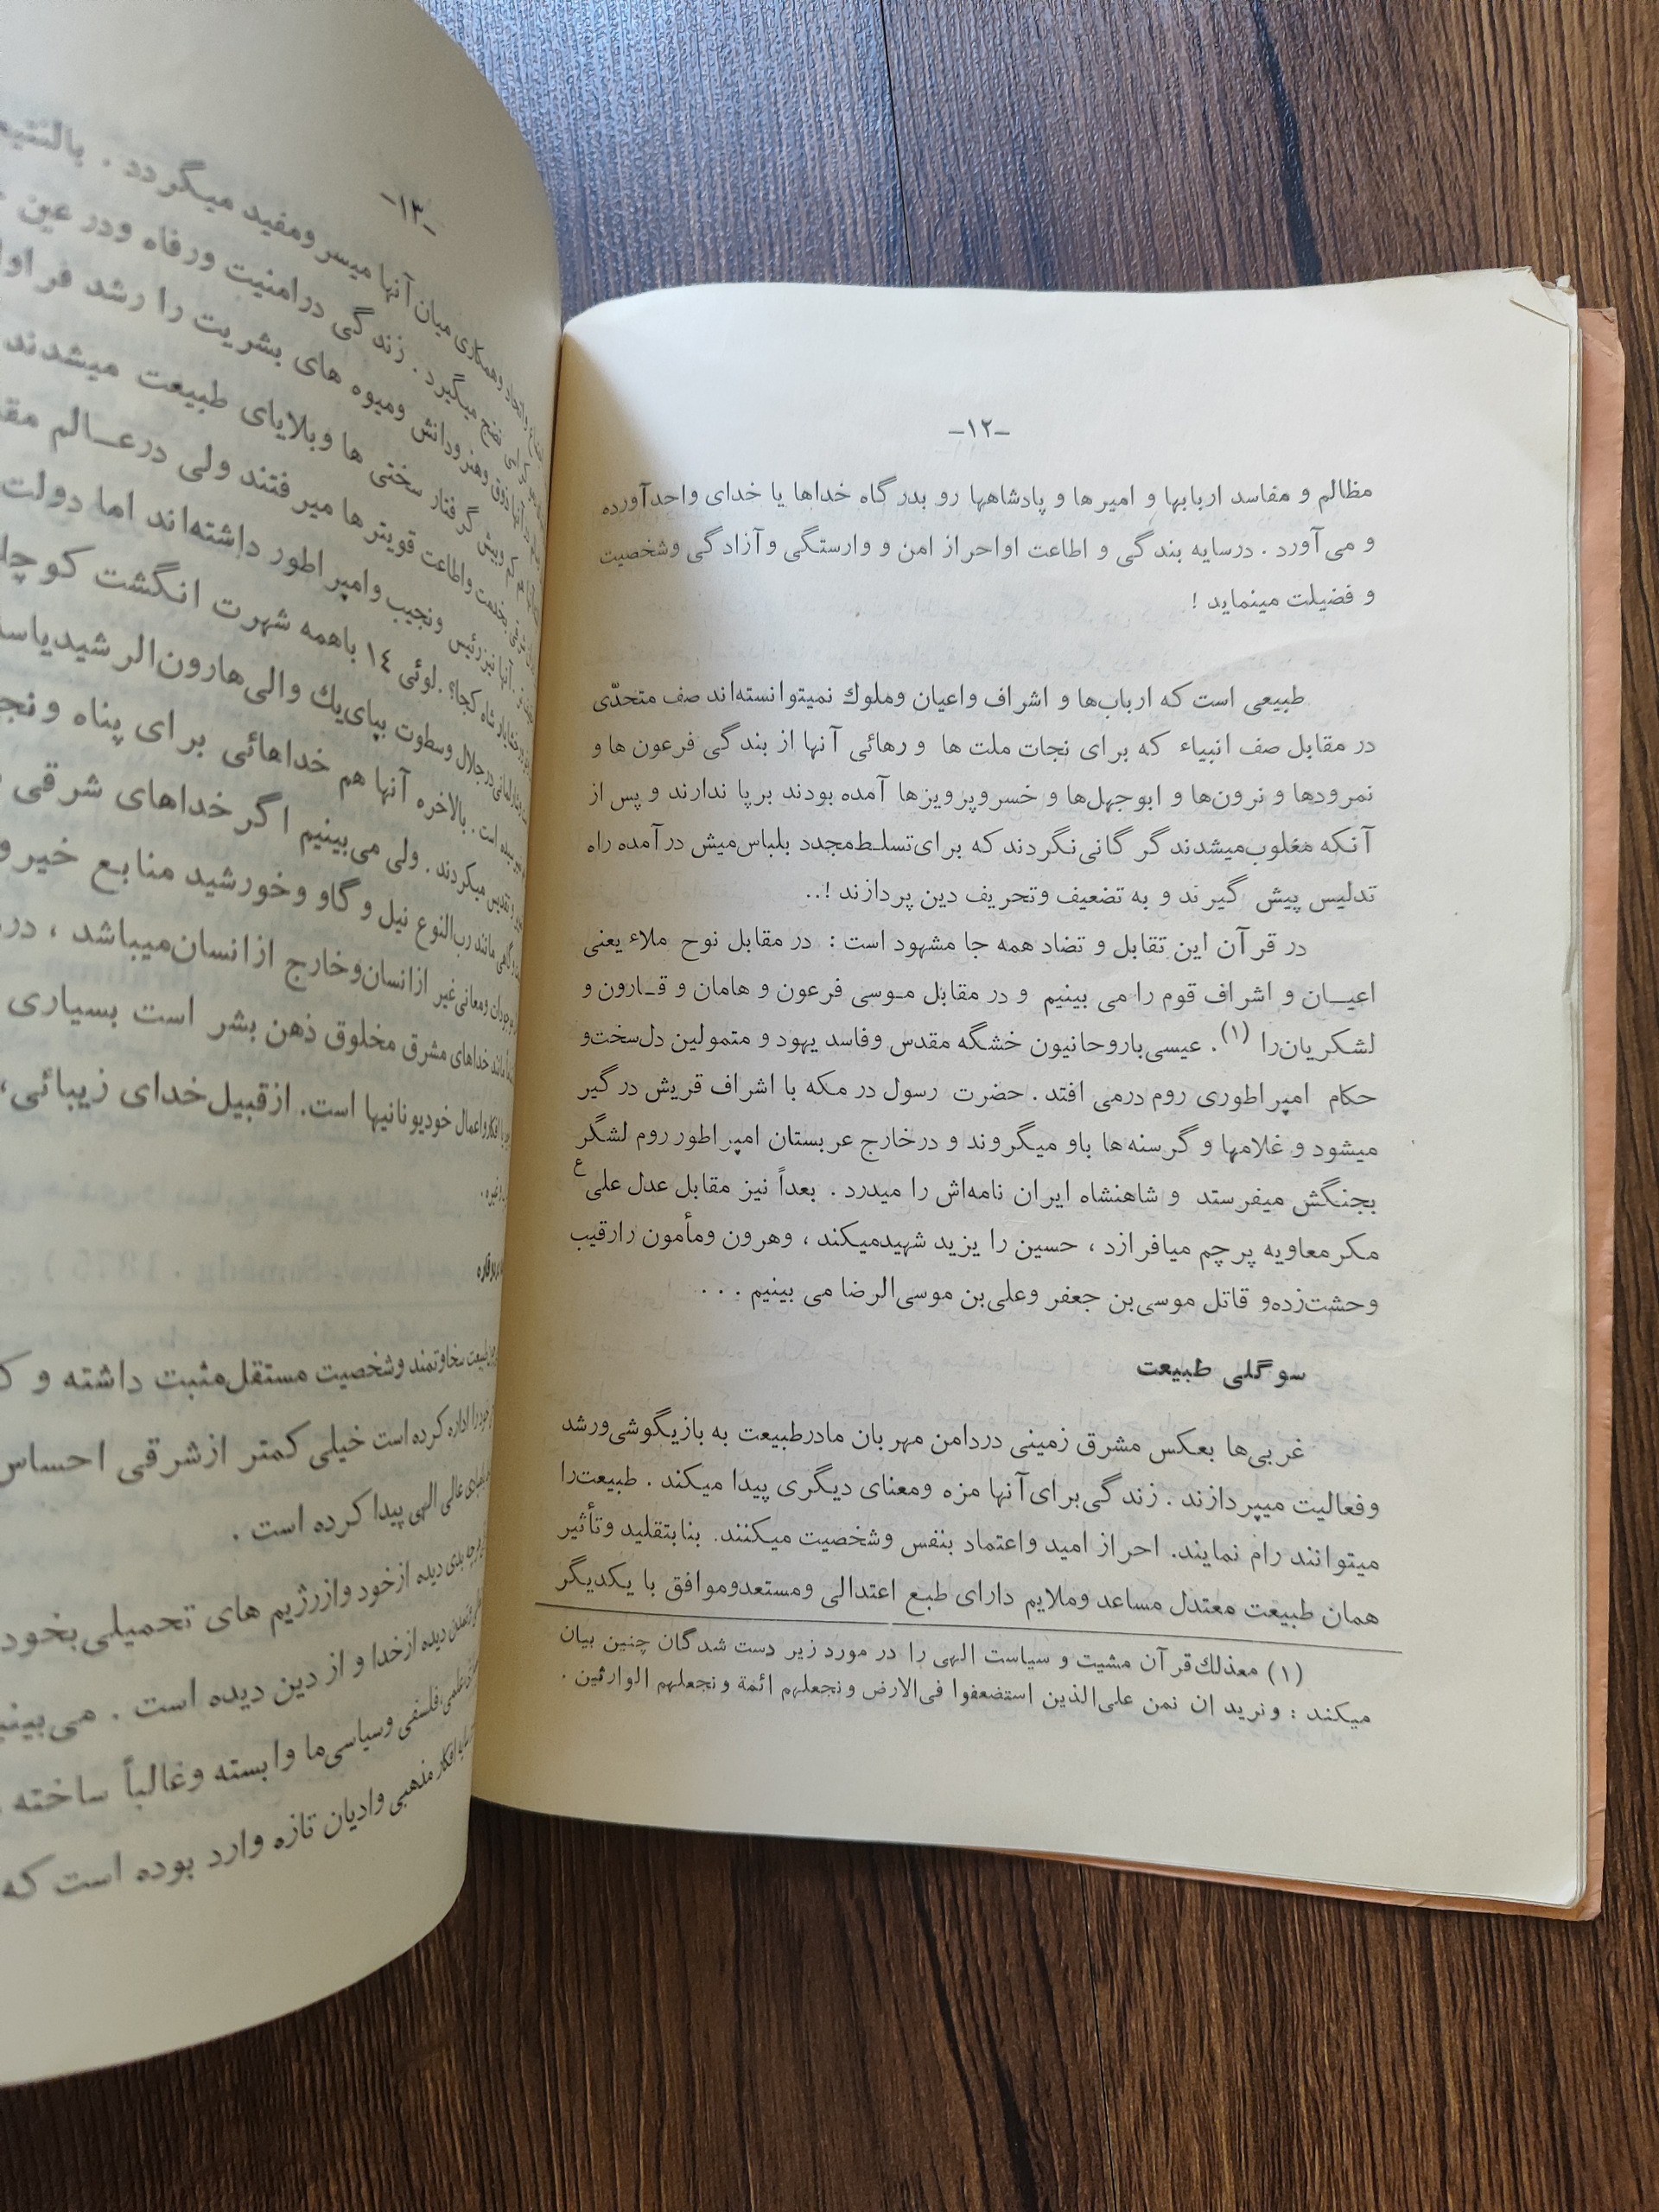 -۱۲-
مظالم و مفاسد اربابها و امیرها و پادشاهها رو بدرگاه خداها یا خدای واحدآورده
و می‌آورد . درسایه بندگی و اطاعت اواحراز امن و وارستگی وآزادگی وشخصیت
و فضیلت مینماید !
طبیعی است که ارباب‌ها و اشراف واعیان وملوك نمیتوانسته‌اند صف متحدّی
در مقابل صف انبیاء که برای نجات ملت ها و رهائی آنها از بندگی فرعون ها و
نمرودها و نرون‌ها و ابوجهل‌ها و خسروپرویزها آمده بودند برپا ندارند و پس از
آنکه مغلوب‌میشدند گرگانی‌نگردند که برای‌تسلـط‌مجدد بلباس‌میش درآمده راه
تدلیس پیش گیرند و به تضعیف وتحریف دین پردازند !..
در قرآن این تقابل و تضاد همه جا مشهود است : در مقابل نوح ملاء یعنی
اعیـــان و اشراف قوم را می بینیم و در مقابل مـوسی فرعون و هامان و قـارون و
لشکریان‌را (۱). عیسی‌باروحانیون خشگه مقدس وفاسد یهود و متمولین دل‌سخت‌و
حکام امپراطوری روم درمی افتد . حضرت رسول در مکه با اشراف قریش درگیر
میشود و غلامها و گرسنه‌ها باو میگروند و درخارج عربستان امپراطور روم لشگر
بجنگش میفرستد و شاهنشاه ایران نامه‌اش را میدرد . بعداً نیز مقابل عدل علی ع
مکرمعاویه پرچم میافرازد ، حسین را یزید شهیدمیکند ، وهرون ومأمون رارقیب
وحشت‌زده‌و قاتل موسی‌بن جعفر وعلی‌بن موسی‌الرضا می بینیم . . .
سوگلی طبیعت
غربی‌ها بعکس مشرق زمینی دردامن مهربان مادرطبیعت به بازیگوشی‌ورشد
وفعالیت میپردازند . زندگی‌برای‌آنها مزه ومعنای دیگری پیدا میکند . طبیعت‌را
میتوانند رام نمایند. احراز امید واعتماد بنفس وشخصیت میکنند. بنابتقلید وتأثیر
همان طبیعت معتدل مساعد وملایم دارای طبع اعتدالی ومستعدوموافق با یکدیگر
(۱) معذلك‌قرآن مشیت و سیاست الهی را در مورد زیر دست شدگان چنین بیان
میکند : ونرید ان نمن علی‌الذین استضعفوا فی‌الارض ونجعلهم ائمة ونجعلهم الوارثین .
-۱۳-
وهمکاری میان آنها میسرومفید میگردد . بالنتیجه
نضج میگیرد . زندگی درامنیت ورفاه ودر عین
ذوق وهنرودانش ومیوه های بشریت را رشد
کم وبیش گرفتار سختی ها وبلایای طبیعت میشدند
بخدمت واطاعت قویترها میرفتند ولی درعــالم
آنها نیزرئیس ونجیب وامپراطور داشته‌اند اما دولت
شاه کجا؟ . لوئی ۱٤ باهمه شهرت انگشت
درجلال وسطوت بپای‌یك والی‌هارون‌الرشید
است . بالاخره آنها هم خداهائی برای پناه
میکردند . ولی می‌بینیم اگر خداهای شرقی
مانند رب‌النوع نیل و گاو وخورشید منابع خیر
ومعانی‌غیر ازانسان‌وخارج ازانسان‌میباشد ،
مانند خداهای مشرق مخلوق ذهن بشر است بسیاری
افکارواعمال خودیونانیها است. ازقبیل خدای زیبائی،
وغیره .
طبیعت سخاوتمند وشخصیت مستقل‌مثبت داشته و
را اداره کرده است خیلی کمتر ازشرقی احساس
عالی الهی پیدا کرده است .
بدی دیده ازخود وازرژیم های تحمیلی‌بخود
دیده ازخدا و از دین دیده است . می‌بینیم
علمی،فلسفی وسیاسی‌ما وابسته وغالباً ساخته
افکار مذهبی وادیان تازه وارد بوده است که